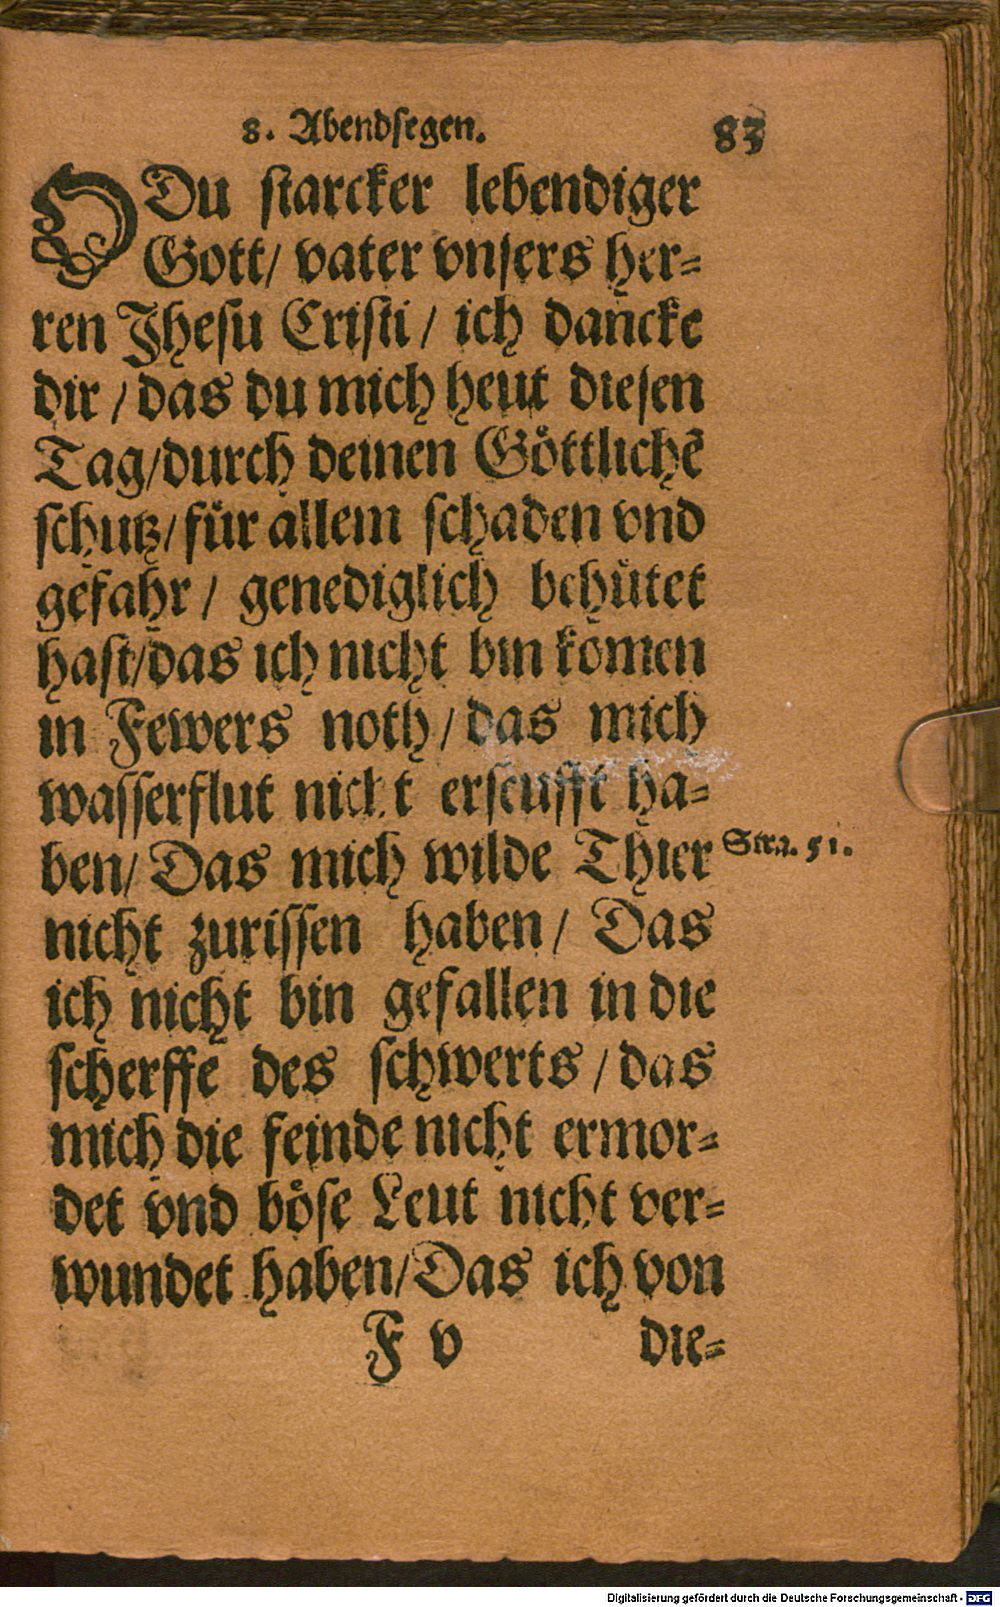 8. Abendsegen. 83
O Du starcker lebendiger
Gott/ vater vnsers her⸗
ren Jhesu Cristi / ich dancke
dir / das du mich heut diesen
Tag/durch deinen Göttlichẽ
schutz/ für allem schaden vnd
gefahr / genediglich behütet
hast/das ich nicht bin komen
in Fewers noth / das mich
wasserflut nicht erseufft ha⸗
ben/ Das mich wilde Thier
Syra. 51.
nicht zurissen haben / Das
ich nicht bin gefallen in die
scherffe des schwerts / das
mich die feinde nicht ermor⸗
det vnd böse Leut nicht ver⸗
wundet haben/Das ich von
F v die⸗
Digitalisierung gefördert durch die Deutsche Forschungsgemeinschaft - DFG